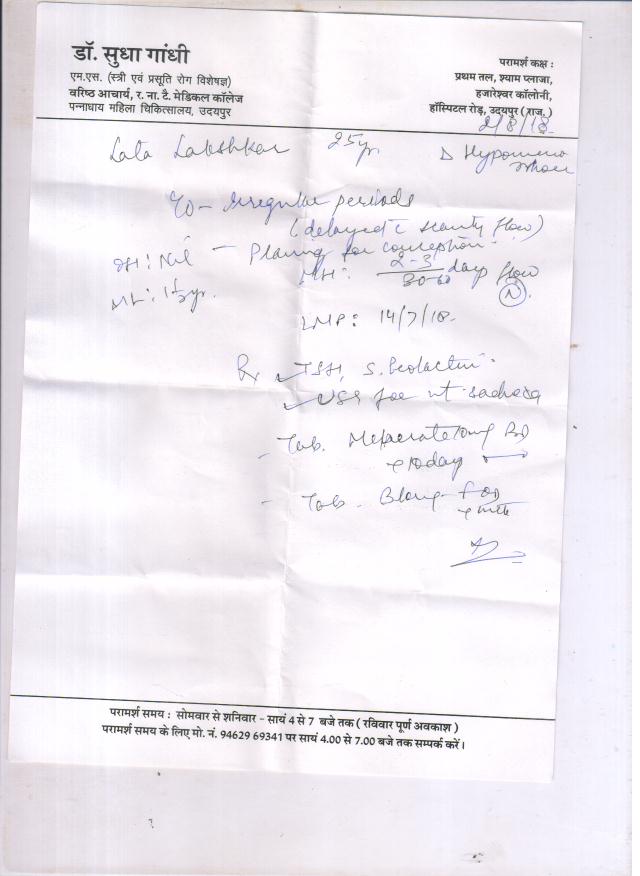 डॉ. सुधा गांधी
एम.एस. (स्त्री एवं प्रसूति रोग विशेषज्ञ)
वरिष्ठ आचार्य, र. ना. टै. मेडिकल कॉलेज
पन्नाधाय महिला चिकित्सालय, उदयपुर
परामर्श कक्ष :
प्रथम तल, श्याम प्लाजा,
हजारेश्वर कॉलोनी,
हॉस्पिटल रोड़, उदयपुर ( राज. )
2/8/18
Lata 25yr.
C/O - Irregular periods
(delayed c scanty flow)
OH: Nil - Planing for conception.
ML: 1½yr.
MH: 2-3/30-60 day flow
(N).
LMP: 14/7/18.
Rx TSH, S. Prolactin.
USG for ut
- Tab. 10mg BD
10day
- Tab. OD
परामर्श समय : सोमवार से शनिवार - सायं 4 से 7 बजे तक ( रविवार पूर्ण अवकाश )
परामर्श समय के लिए मो. नं. 94629 69341 पर सायं 4.00 से 7.00 बजे तक सम्पर्क करें।